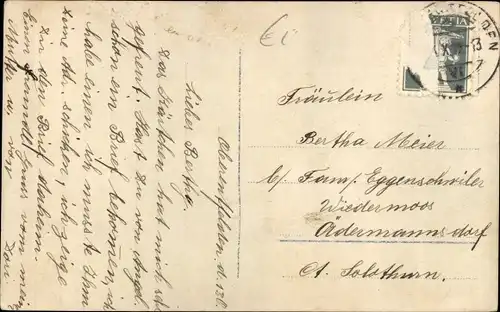 Oberentfelden, d. 13.
Liebes Bertha.
Das Kärtchen hat mich sehr
gefreut. Hast Du von Angl.
schon ein Brief bekommen, ich
habe einen ich musste Ihm
deine Adr. schicken, ich zeige
Dir den Brief
Einen Grus von mein
Mutter u. von
Dora
Fräulein
Bertha Meier
b/ Fam/ Eggenschwiler
Wiedermoos
Ädermannsdorf
Ct. Solothurn.